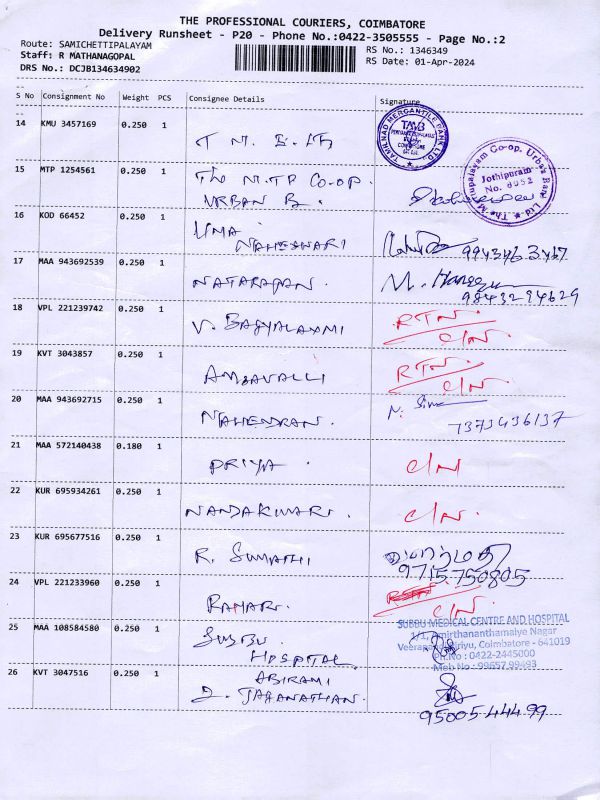 THE PROFESSIONAL COURIERS, COIMBATORE
Delivery Runsheet - P20 - Phone No.:0422-3505555 - Page No.:2
Route: SAMICHETTIPALAYAM
RS No.: 1346349
Staff: R MATHANAGOPAL
RS Date: 01-Apr-2024
DRS No.: DCJB134634902
S No Consignment No Weight PCS Consignee Details Signature
14 KMU 3457169 0.250 1
TAMILNAD MERCANTILE BANK LTD.
TMB
COIMBATORE
15 MTP 1254561 0.250 1 The M.T.P CO-OP.
URBAN B.
The Mettupalayam Co-op. Urban Bank Ltd
Jothipuram
No. 8052
16 KOD 66452 0.250 1 UMA
MAHESWARI
9943463467
17 MAA 943692539 0.250 1 NATARAJAN.
9843294629
18 VPL 221239742 0.250 1 V. BAGYALAXMI
RTN.
C/N.
19 KVT 3043857 0.250 1 AMBAVALLI
RTN.
C/N.
20 MAA 943692715 0.250 1 MAHENDRAN.
21 MAA 572140438 0.180 1 PRIYA . C/N
22 KUR 695934261 0.250 1 NANDAKUMAR. C/N.
23 KUR 695677516 0.250 1 R. SUMATHI
9715750805
24 VPL 221233960 0.250 1
C/N.
25 MAA 108584580 0.250 1 SUBBU
HOSPITAL.
SUBBU MEDICAL CENTRE AND HOSPITAL
1/1, Amirthananthamalye Nagar
Coimbatore - 641019
Ph.No : 0422-2445000
Mob No : 99657 99493
26 KVT 3047516 0.250 1 ABIRAMI
J. JAGANATHAN.
9500544499